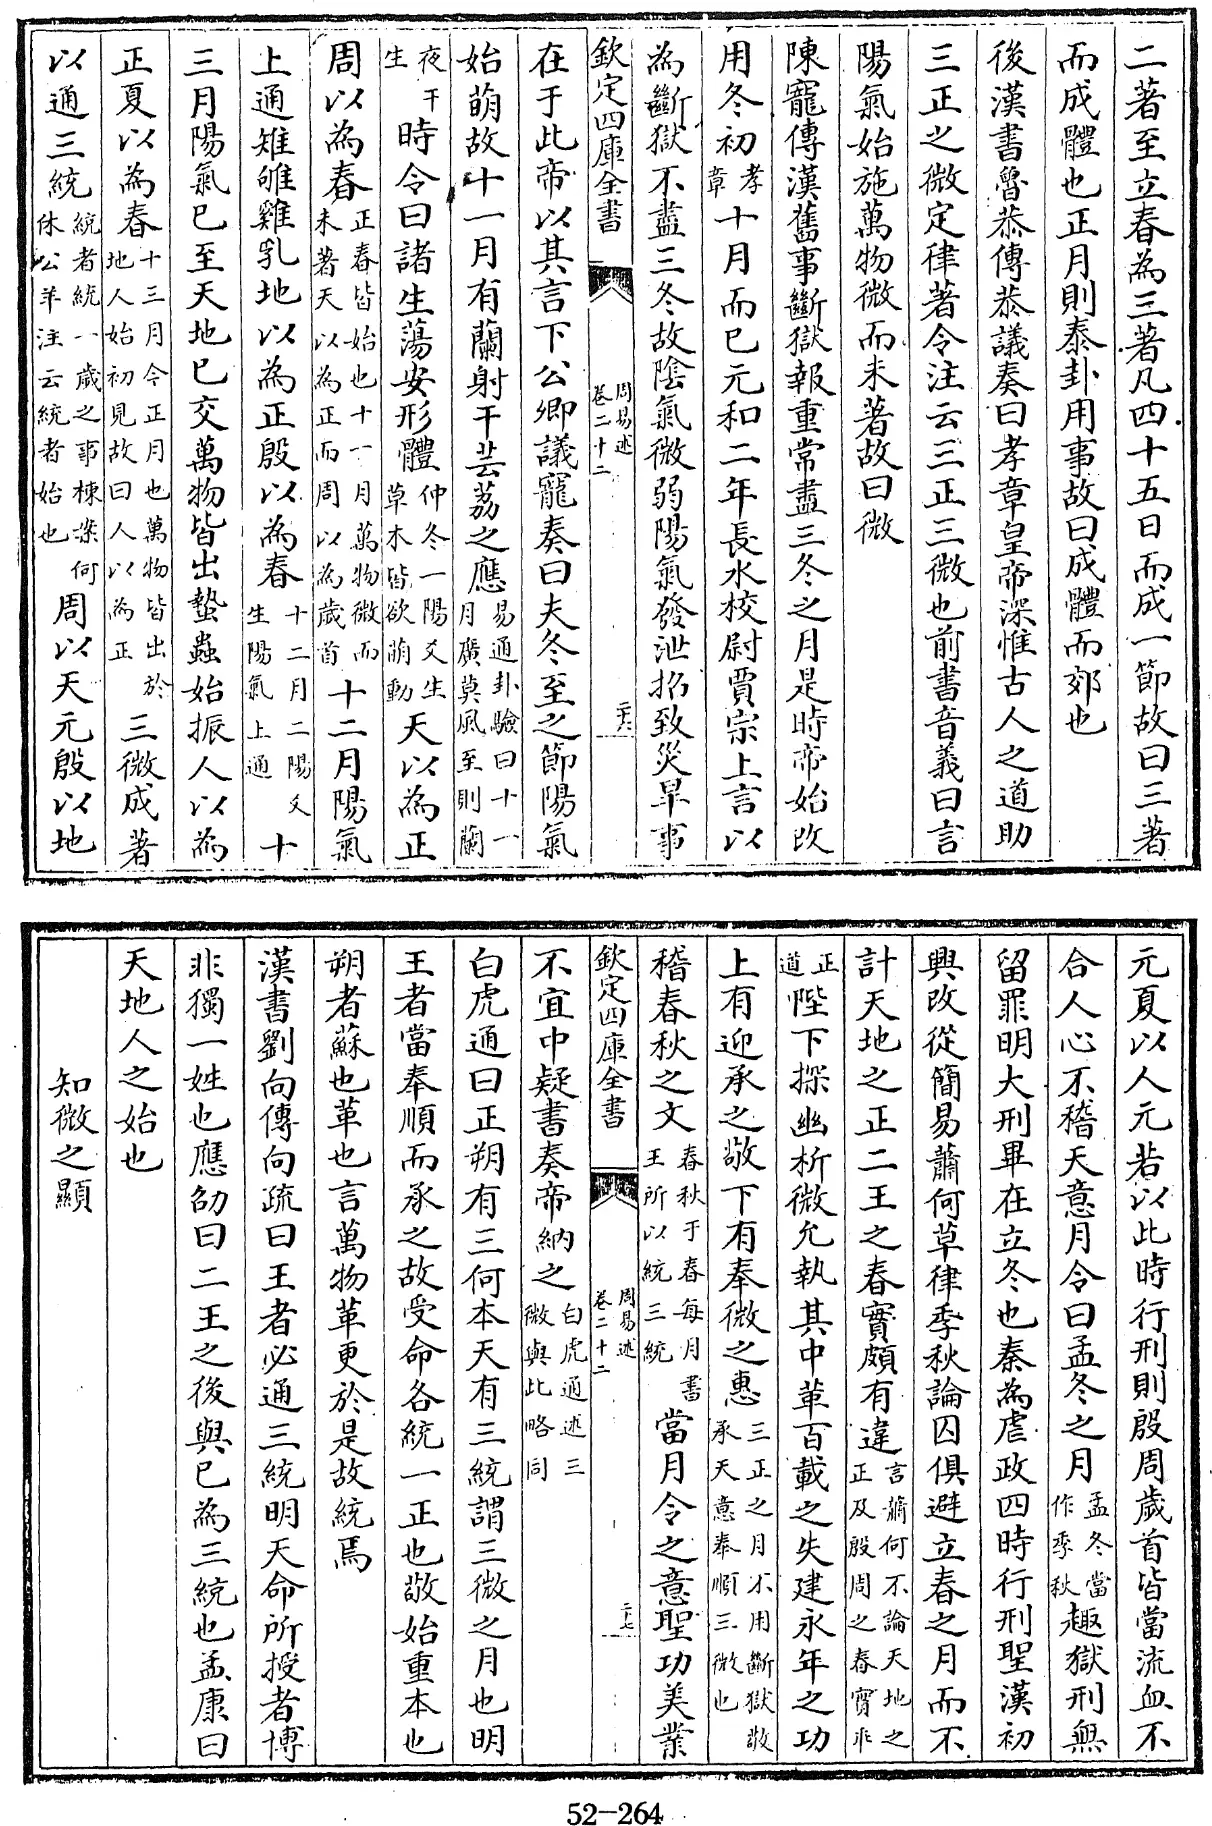 二著至立春為三著凡四十五日而成一節故曰三著
而成體也正月則泰卦用事故曰成體而郊也
後漢書魯恭傳恭議奏曰孝章皇帝深惟古人之道助
三正之微定律著令注云三正三微也前書音義曰言
陽氣始施萬物微而未著故曰微
陳寵傳漢舊事斷獄報重常盡三冬之月是時帝始改
用冬初孝章十月而已元和二年長水校尉賈宗上言以
為斷獄不盡三冬故陰氣微弱陽氣發泄招致災旱事
欽定四庫全書 周易述卷二十二 二十六
在于此帝以其言下公卿議寵奏曰夫冬至之節陽氣
始萌故十一月有蘭射干芸荔之應易通卦驗曰十一月廣莫風至則蘭
夜干生時令曰諸生蕩安形體仲冬一陽爻生草木皆欲萌動天以為正
周以為春正春皆始也十一月萬物微而未著天以為正而周以為歲首十二月陽氣
上通雉雊雞乳地以為正殷以為春十二月二陽爻生陽氣上通十
三月陽氣已至天地已交萬物皆出蟄蟲始振人以為
正夏以為春十三月今正月也萬物皆出於地人始初見故曰人以為正三微成著
以通三統統者統一歲之事棟梁何休公羊注云統者始也周以天元殷以地
元夏以人元若以此時行刑則殷周歲首皆當流血不
合人心不稽天意月令曰孟冬之月孟冬當作季秋趣獄刑無
留罪明大刑畢在立冬也秦為虐政四時行刑聖漢初
興改從簡易蕭何草律季秋論囚俱避立春之月而不
計天地之正二王之春實頗有違言蕭何不論天地之正及殷周之春實乖
正道陛下探幽析微允執其中革百載之失建永年之功
上有迎承之敬下有奉微之惠三正之月不用斷獄敬承天意奉順三微也
稽春秋之文春秋于春每月書王所以統三統當月令之意聖功美業
欽定四庫全書 周易述卷二十二 二十七
不宜中疑書奏帝納之白虎通述三微與此略同
白虎通曰正朔有三何本天有三統謂三微之月也明
王者當奉順而承之故受命各統一正也敬始重本也
朔者蘇也革也言萬物革更於是故統焉
漢書劉向傳向疏曰王者必通三統明天命所授者博
非獨一姓也應劭曰二王之後與已為三統也孟康曰
天地人之始也
知微之顯
52-264